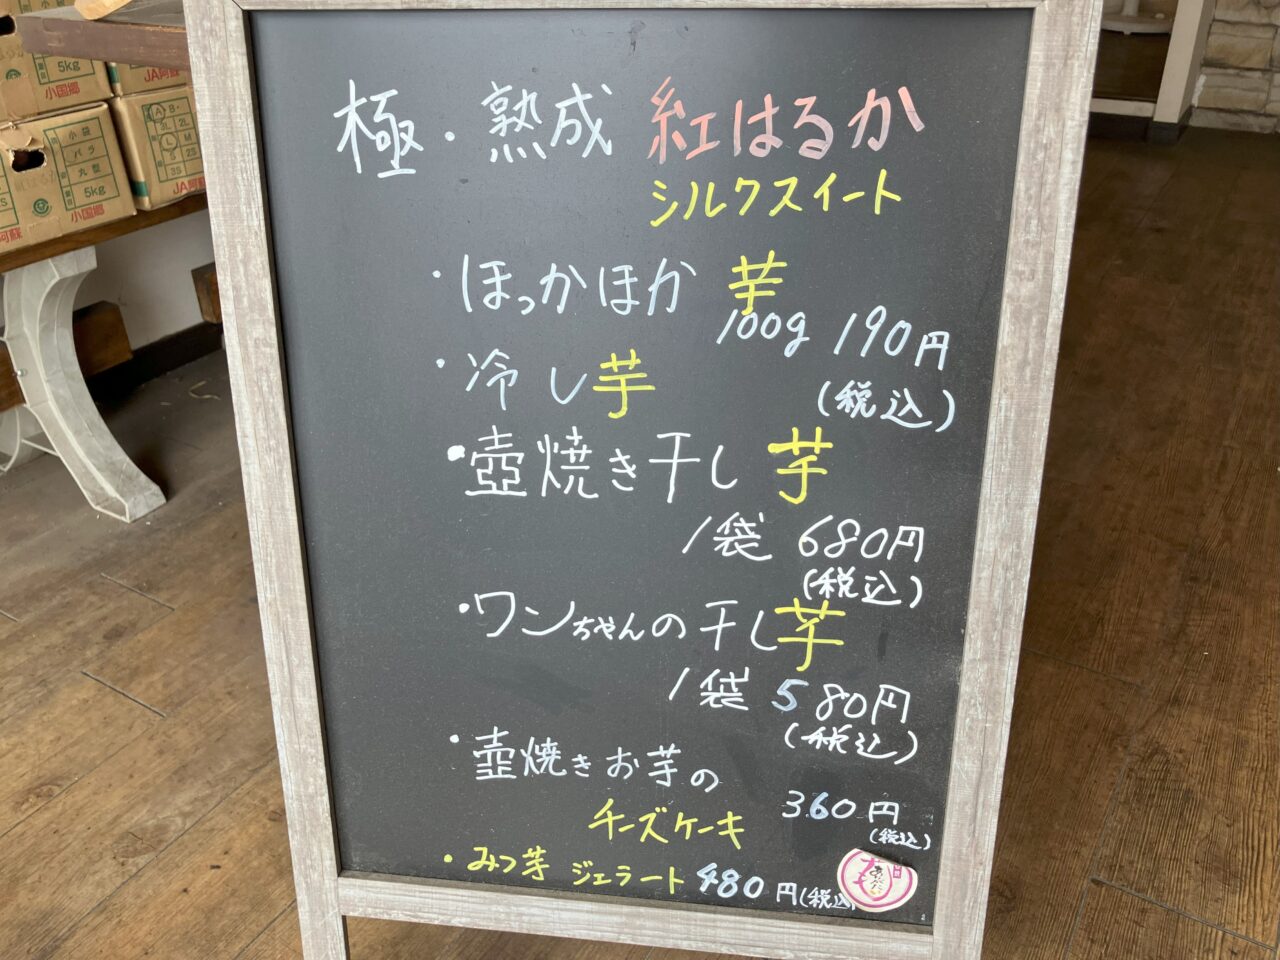 極・熟成 紅はるか
シルクスイート
・ほっかほか 芋
100g 190円
(税込)
・冷し芋
・壺焼き干し芋
1袋 680円
(税込)
・ワンちゃんの干し芋
1袋 580円
(税込)
・壺焼きお芋の
チーズケーキ
360円
(税込)
・みつ芋 ジェラート 480円(税込)
5kg
JA阿蘇
小国郷
小袋
バラ
丸型
5kg
小国郷
阿蘇
A B
3L 2L
L M
S 2S
JA阿蘇
小国郷